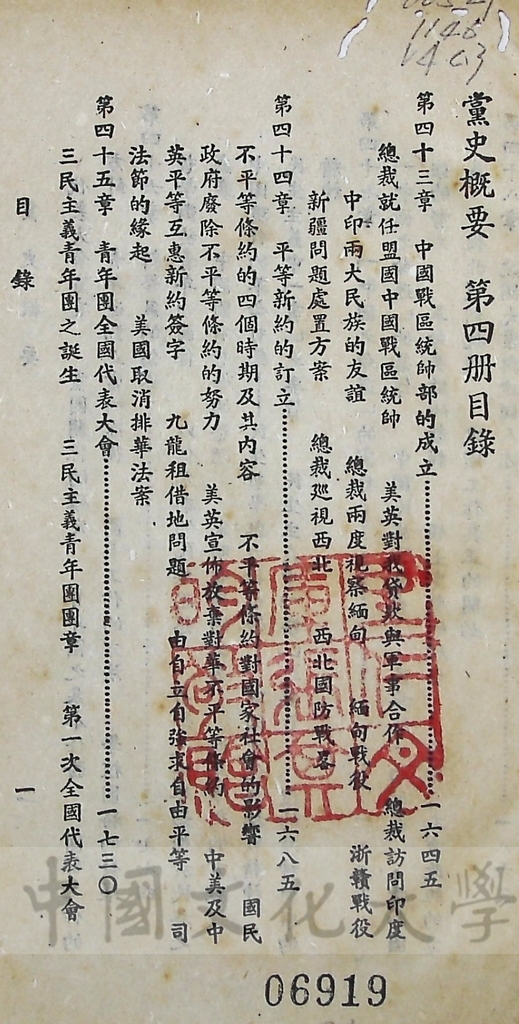 黨史概要 第四册目錄
第四十三章 中國戰區統帥部的成立………一六四五
總裁就任盟國中國戰區統帥 美英對我貸款與軍事合作 總裁訪問印度
中印兩大民族的友誼 總裁兩度視察緬甸 緬甸戰役 浙贛戰役
新疆問題處置方案 總裁巡視西北 西北國防戰畧
第四十四章 平等新約的訂立………一六八五
不平等條約的四個時期及其內容 不平等條約對國家社會的影響 國民
政府廢除不平等條約的努力 美英宣佈放棄對華不平等條約 中美及中
英平等互惠新約簽字 九龍租借地問題 由自立自強求自由平等 司
法節的緣起 美國取消排華法案
第四十五章 青年團全國代表大會………一七三〇
三民主義青年團之誕生 三民主義青年團團章 第一次全國代表大會
目錄 一
中國文化大學
06919